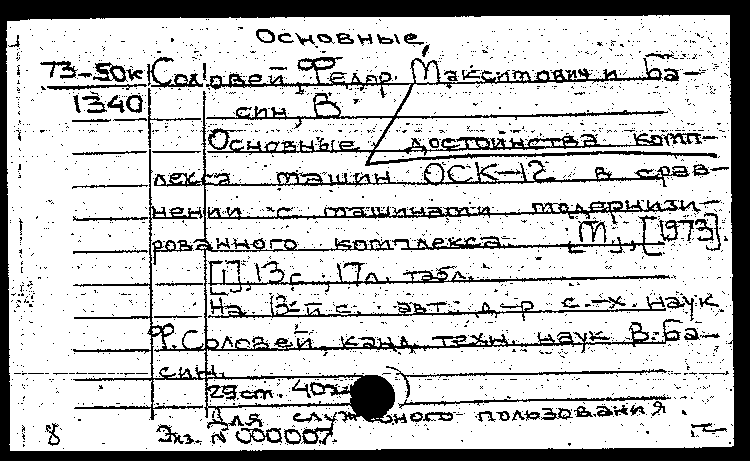 Основные
73-50к Соловей, Федор Максимович и Ба-
1340 син, В
Основные достоинства комп-
лекса машин ОСК-12 в срав-
нении с машинами модернизи-
рованного комплекса. [М], [1973].
[1], 13 с.; 17 л. табл.
На 13-й с. авт.: д-р с.-х. наук
Ф. Соловей, канд. техн. наук В. Ба-
син.
29 см. 40
Для служебного пользования.
8 Экз. N 000007.